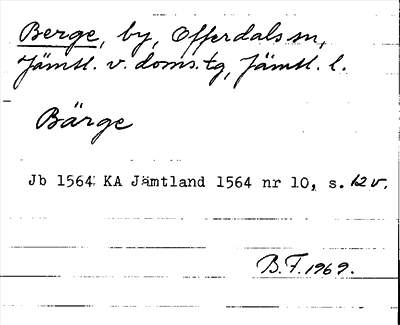 Berge, by, Offerdals sn,
Jämtl. v. doms.tg, Jämtl. l.
Bärge
Jb 1564: KA Jämtland 1564 nr 10, s. 12 v.
B.F. 1969.